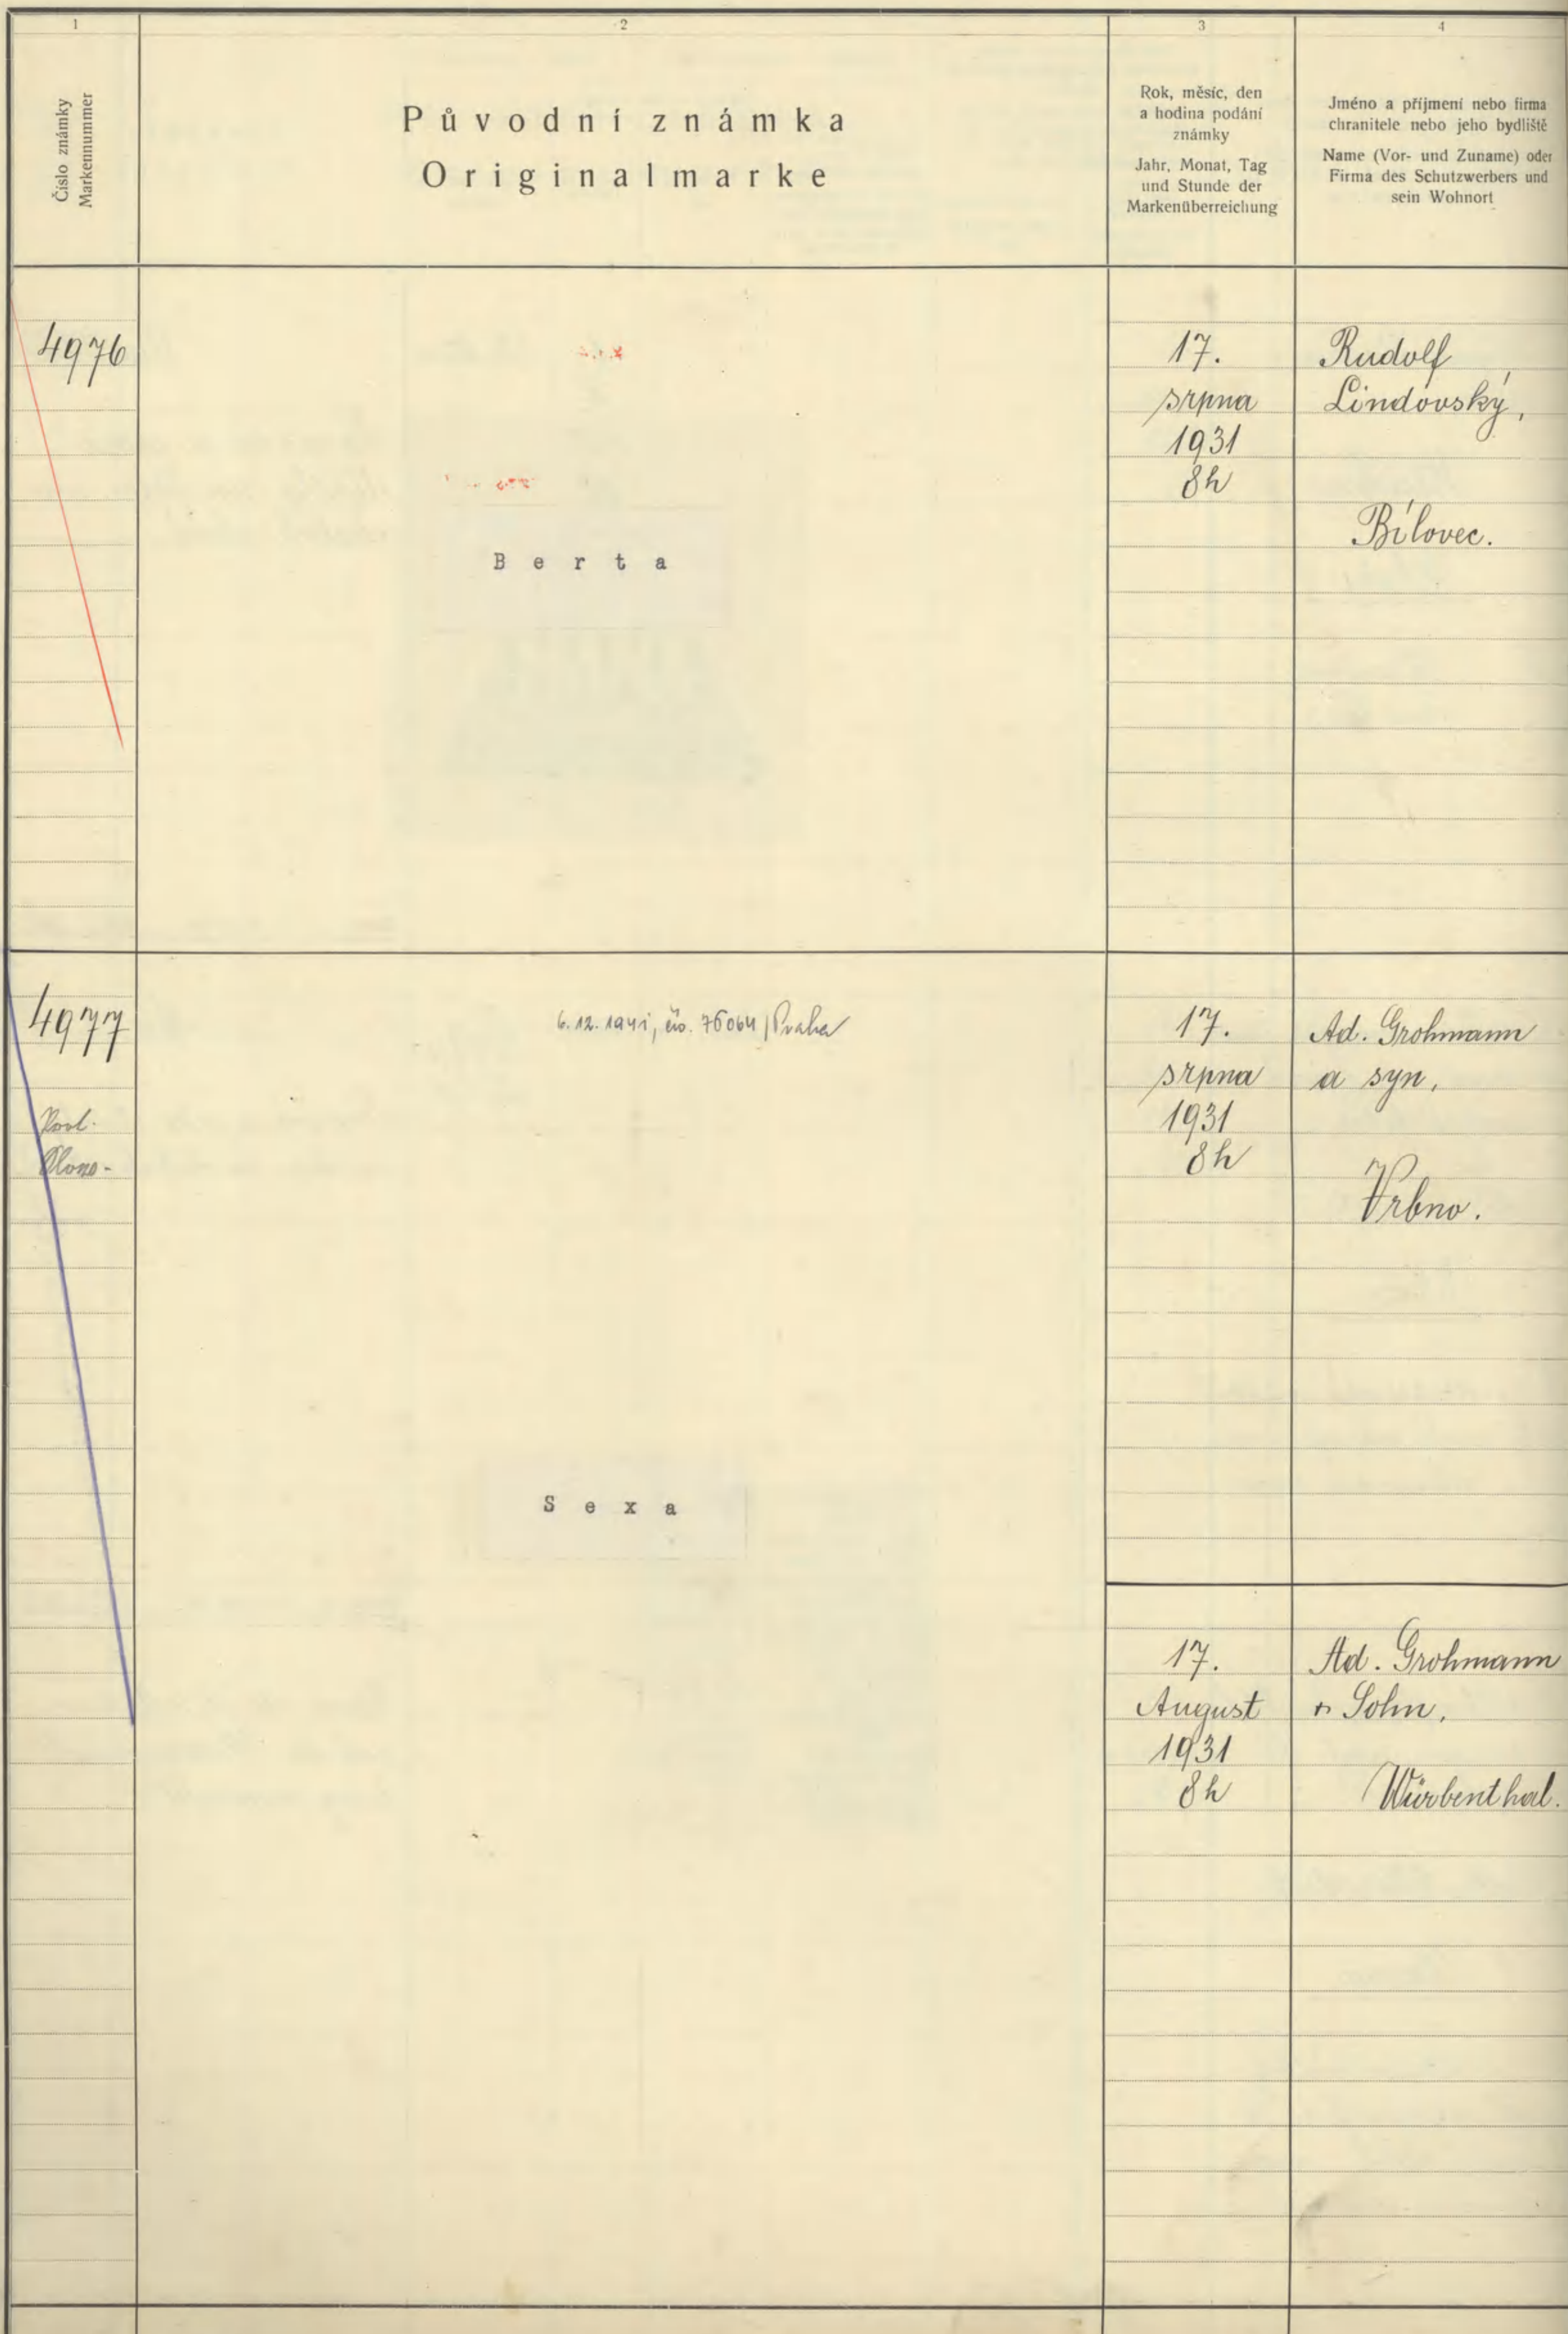 1
2
3
4
Číslo známky
Markennummer
Původní známka
Originalmarke
Rok, měsíc, den
a hodina podání
známky
Jahr, Monat, Tag
und Stunde der
Markenüberreichung
Jméno a příjmení nebo firma
chranitele nebo jeho bydliště
Name (Vor- und Zuname) oder
Firma des Schutzwerbers und
sein Wohnort
4976
Berta
17.
srpna
1931
8h
Rudolf
Lindovský,
Bílovec.
4977
6. 12. 1941, čís. 76064 / Praha
Sexa
17.
srpna
1931
8h
Ad. Grohmann
a syn,
Vrbno.
17.
August
1931
8h
Ad. Grohmann
Sohn,
Würbenthal.